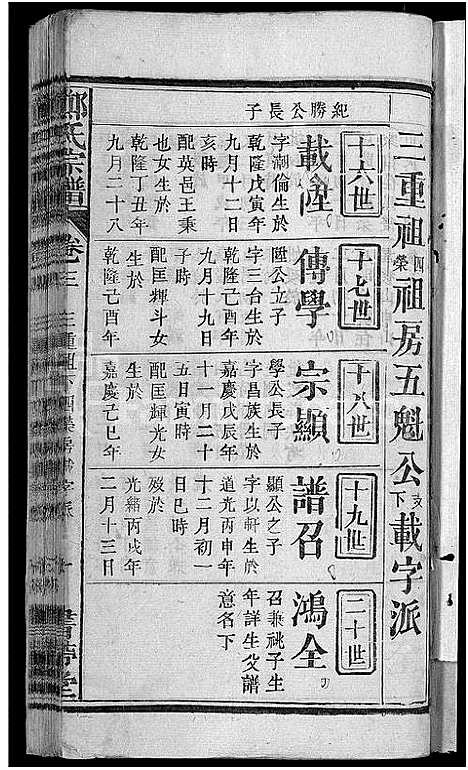 三重祖四榮祖房五魁公支下載字派
十六世
紀勝公長子
載陞
字潮倫生於
乾隆戊寅年
九月十二日
亥時
配英邑王秉
也女生於
乾隆丁丑年
九月二十八
十七世
傳學
陞公立子
字三台生於
乾隆己酉年
九月十九日
子時
配匡輝斗女
生於
乾隆己酉年
十八世
宗顯
學公長子
字昌族生於
嘉慶戊辰年
十一月二十
五日寅時
配匡輝光女
生於
嘉慶己巳年
十九世
譜召
顯公之子
字以軒生於
道光丙申年
十二月初一
日巳時
歿於
光緒丙戌年
二月十三日
二十世
鴻全
召兼祧子生
年詳生父譜
意名下
鄭氏宗譜 卷三 三重祖下四榮房載字派